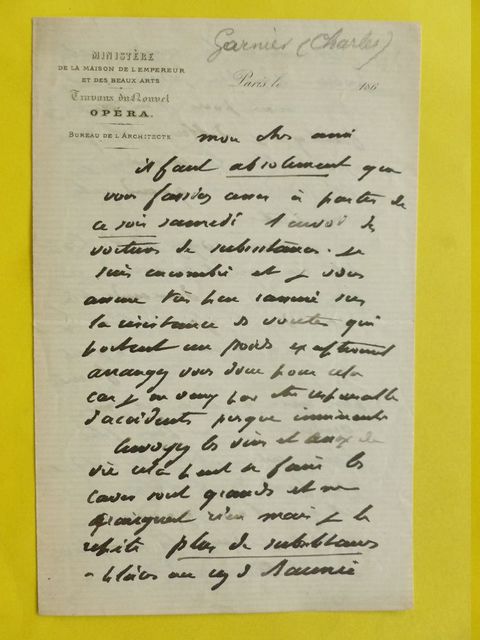 Garnier (Charles)
MINISTÈRE
DE LA MAISON DE L'EMPEREUR
ET DES BEAUX ARTS
Travaux du Nouvel
OPÉRA.
BUREAU DE L'ARCHITECTE
Paris, le 186
mon cher ami
il faut absolument que
vous fassiez cesser à partir de
ce soir samedi l'envoi de
voitures de subsistances. je
suis encombré et je vous
assure très peu rassuré sur
la résistance de voutes qui
portent un poids exceptionnel
arrangez vous donc pour cela
car je ne veux pas être responsable
d'accidents presque imminents
Envoyez les vins et eaux de
vie cela peut se faire les
caves sont grandes et ne
craignent rien mais je le
répète plus de subsistances